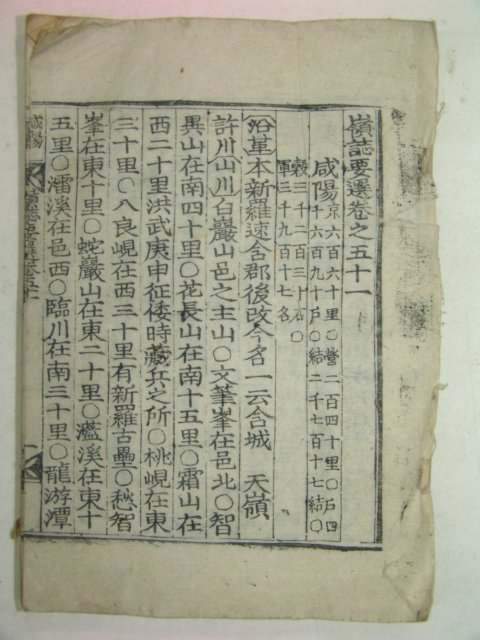 嶺誌要選卷之五十一
咸陽 京六百六十里○營二百四十里○戶四
千六百九十戶○結二千七百十七結○
穀三千二百三十石○
軍三千九百十七名
沿革本新羅速含郡後改今名一云含城 天嶺
許川山川白巖山邑之主山○文筆峯在邑北○智
異山在南四十里○花長山在南十五里○霜山在
西二十里洪武庚申征倭時藏兵之所○桃峴在東
三十里○八良峴在西三十里有新羅古壘○愁智
峯在東十里○蛇巖山在東二十里○灆溪在東十
五里○㵢溪在邑西○臨川在南三十里○龍游潭
咸陽